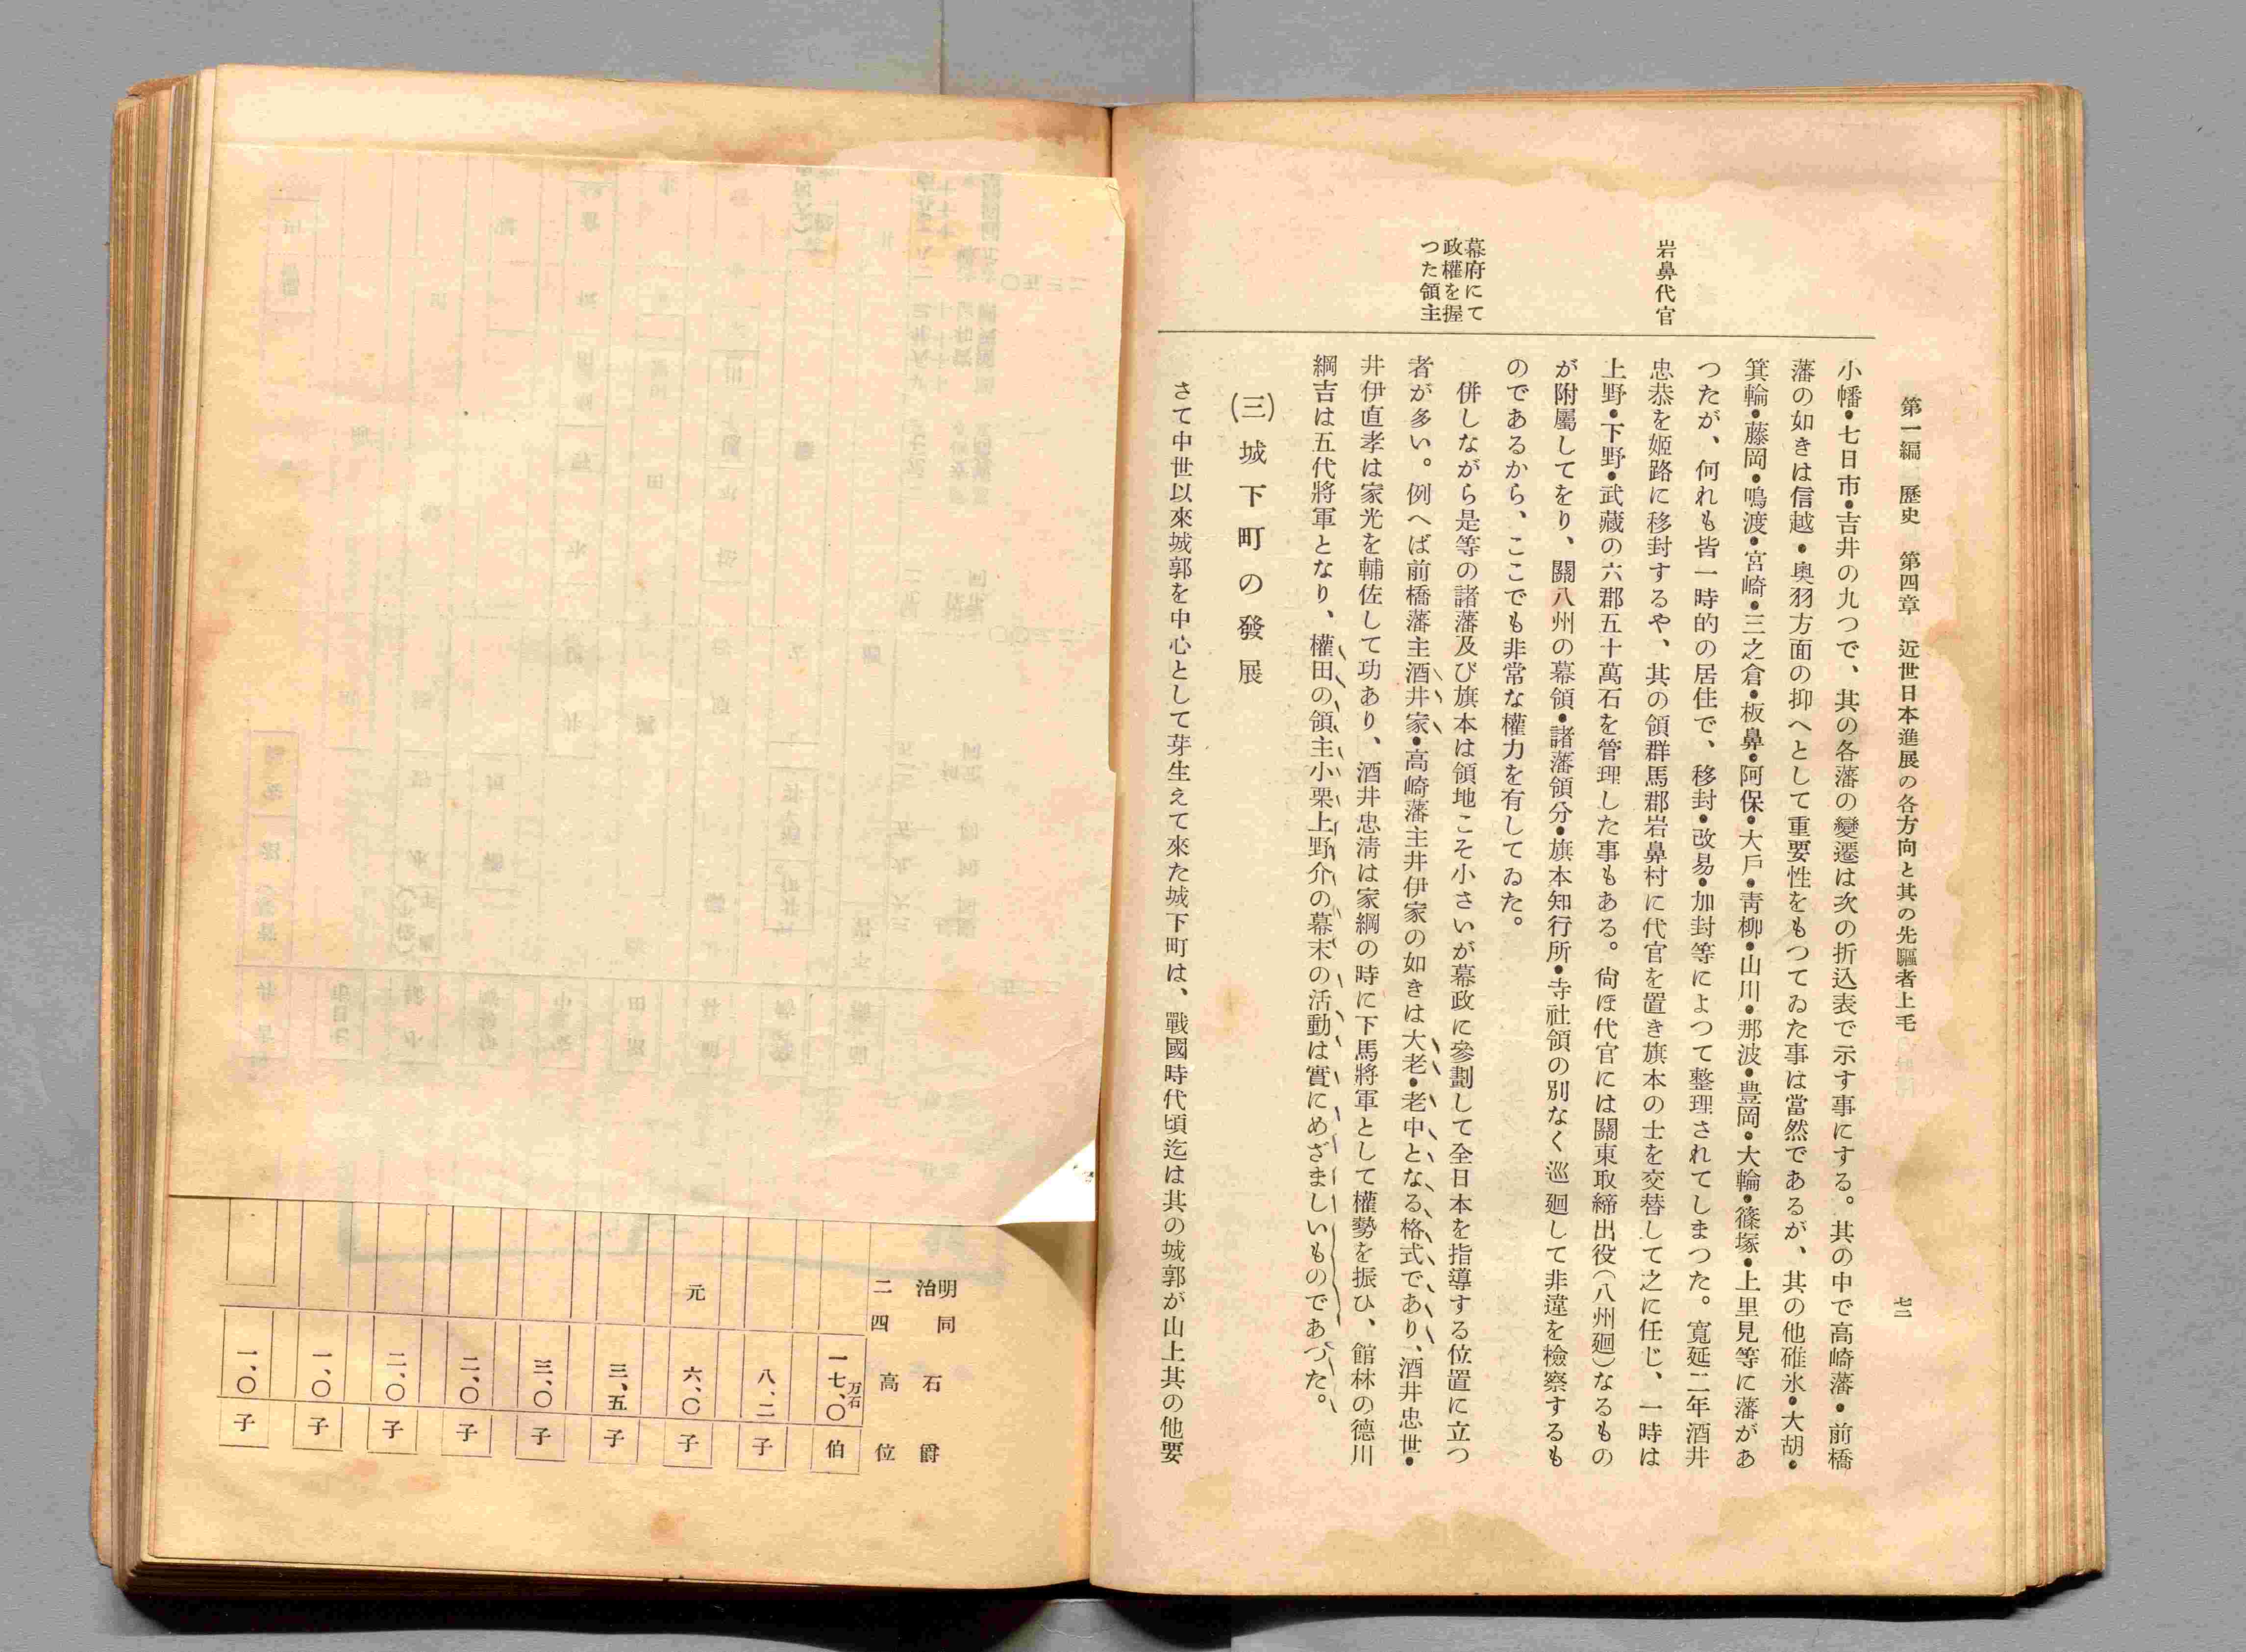 第一編　歷史　第四章　近世日本進展の各方向と其の先驅者上毛
七二
岩鼻代官
幕府にて
政權を握
つた領主
小幡・七日市・吉井の九つで、其の各藩の變遷は次の折込表で示す事にする。其の中で高崎藩・前橋
藩の如きは信越・奥羽方面の抑へとして重要性をもつてゐた事は當然であるが、其の他碓氷・大胡・
箕輪・藤岡・鳴渡・宮崎・三之倉・板鼻・阿保・大戶・靑柳・山川・那波・豊岡・大輪・篠塚・上里見等に藩があ
つたが、何れも皆一時的の居住で、移封・改易・加封等によつて整理されてしまつた。寬延二年酒井
忠恭を姬路に移封するや、其の領群馬郡岩鼻村に代官を置き旗本の士を交替して之に任じ、一時は
上野・下野・武藏の六郡五十萬石を管理した事もある。尙ほ代官には關東取締出役（八州廻）なるもの
が附屬してをり、關八州の幕領・諸藩領分・旗本知行所・寺社領の別なく巡廻して非違を檢察するも
のであるから、ここでも非常な權力を有してゐた。
併しながら是等の諸藩及び旗本は領地こそ小さいが幕政に參劃して全日本を指導する位置に立つ
者が多い。例へば前橋藩主酒井家・高崎藩主井伊家の如きは大老・老中となる格式であり、酒井忠世・
井伊直孝は家光を輔佐して功あり、酒井忠淸は家綱の時に下馬將軍として權勢を振ひ、館林の德川
綱吉は五代將軍となり、權田の領主小栗上野介の幕末の活動は實にめざましいものであつた。
(三)　城下町の發展
さて中世以來城郭を中心として芽生えて來た城下町は、戰國時代頃迄は其の城郭が山上其の他要
明治二
同四
元
石高
万石
一七、〇
八、二
六、〇
三、五
三、〇
二、〇
二、〇
一、〇
一、〇
爵位
伯
子
子
子
子
子
子
子
子